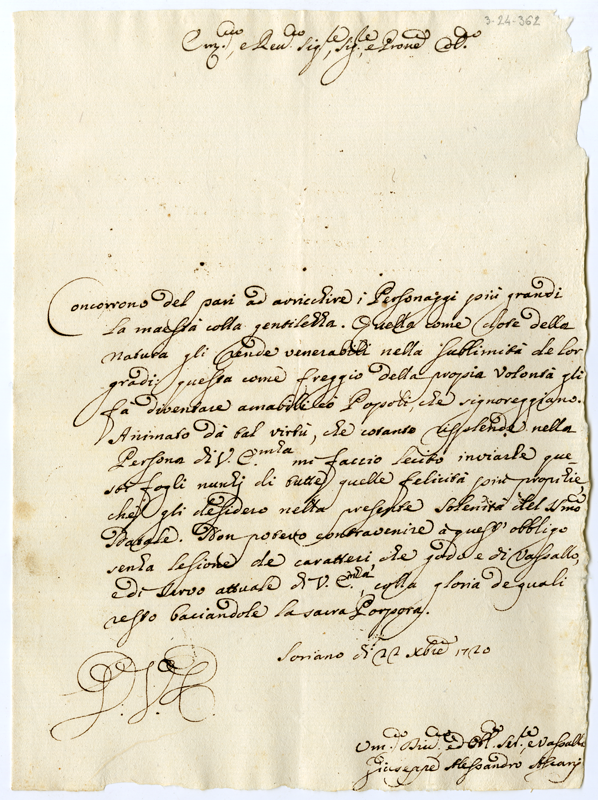 3-24-362
Em.mo, e Rev.mo Sig.re, Sig.re, e Prone Col.mo
Concorrono del pari ad avricchire i Personaggi più grandi
la maestà colla gentilezza. Quella come dote della
natura gli rende venerabili nella sublimità de lor
gradi: questa come freggio della propia volontà gli
fa diventare amabili co Popoli, che signoreggiano.
Animato dà tal virtù, che cotanto risplende nella
Persona di V. E.mza mi faccio lecito inviarle que
sti fogli nunzi di tutte quelle felicità più propizie
che gli desidero nella presente solenità del S.mo
Natale. Non poterto contravenire à quest' obbligo
senza lesione de caratteri che godo e di Vassallo,
e di servo attuale di V. E.mza, colla gloria de quali
resto baciandole la sacra Porpora.
Soriano di 22 Xbre 1720
D. V. E.
Um.mo Div.mo, ed Obl. Ser.re, e Vassallo
Giuseppe Alessandro Ascarj